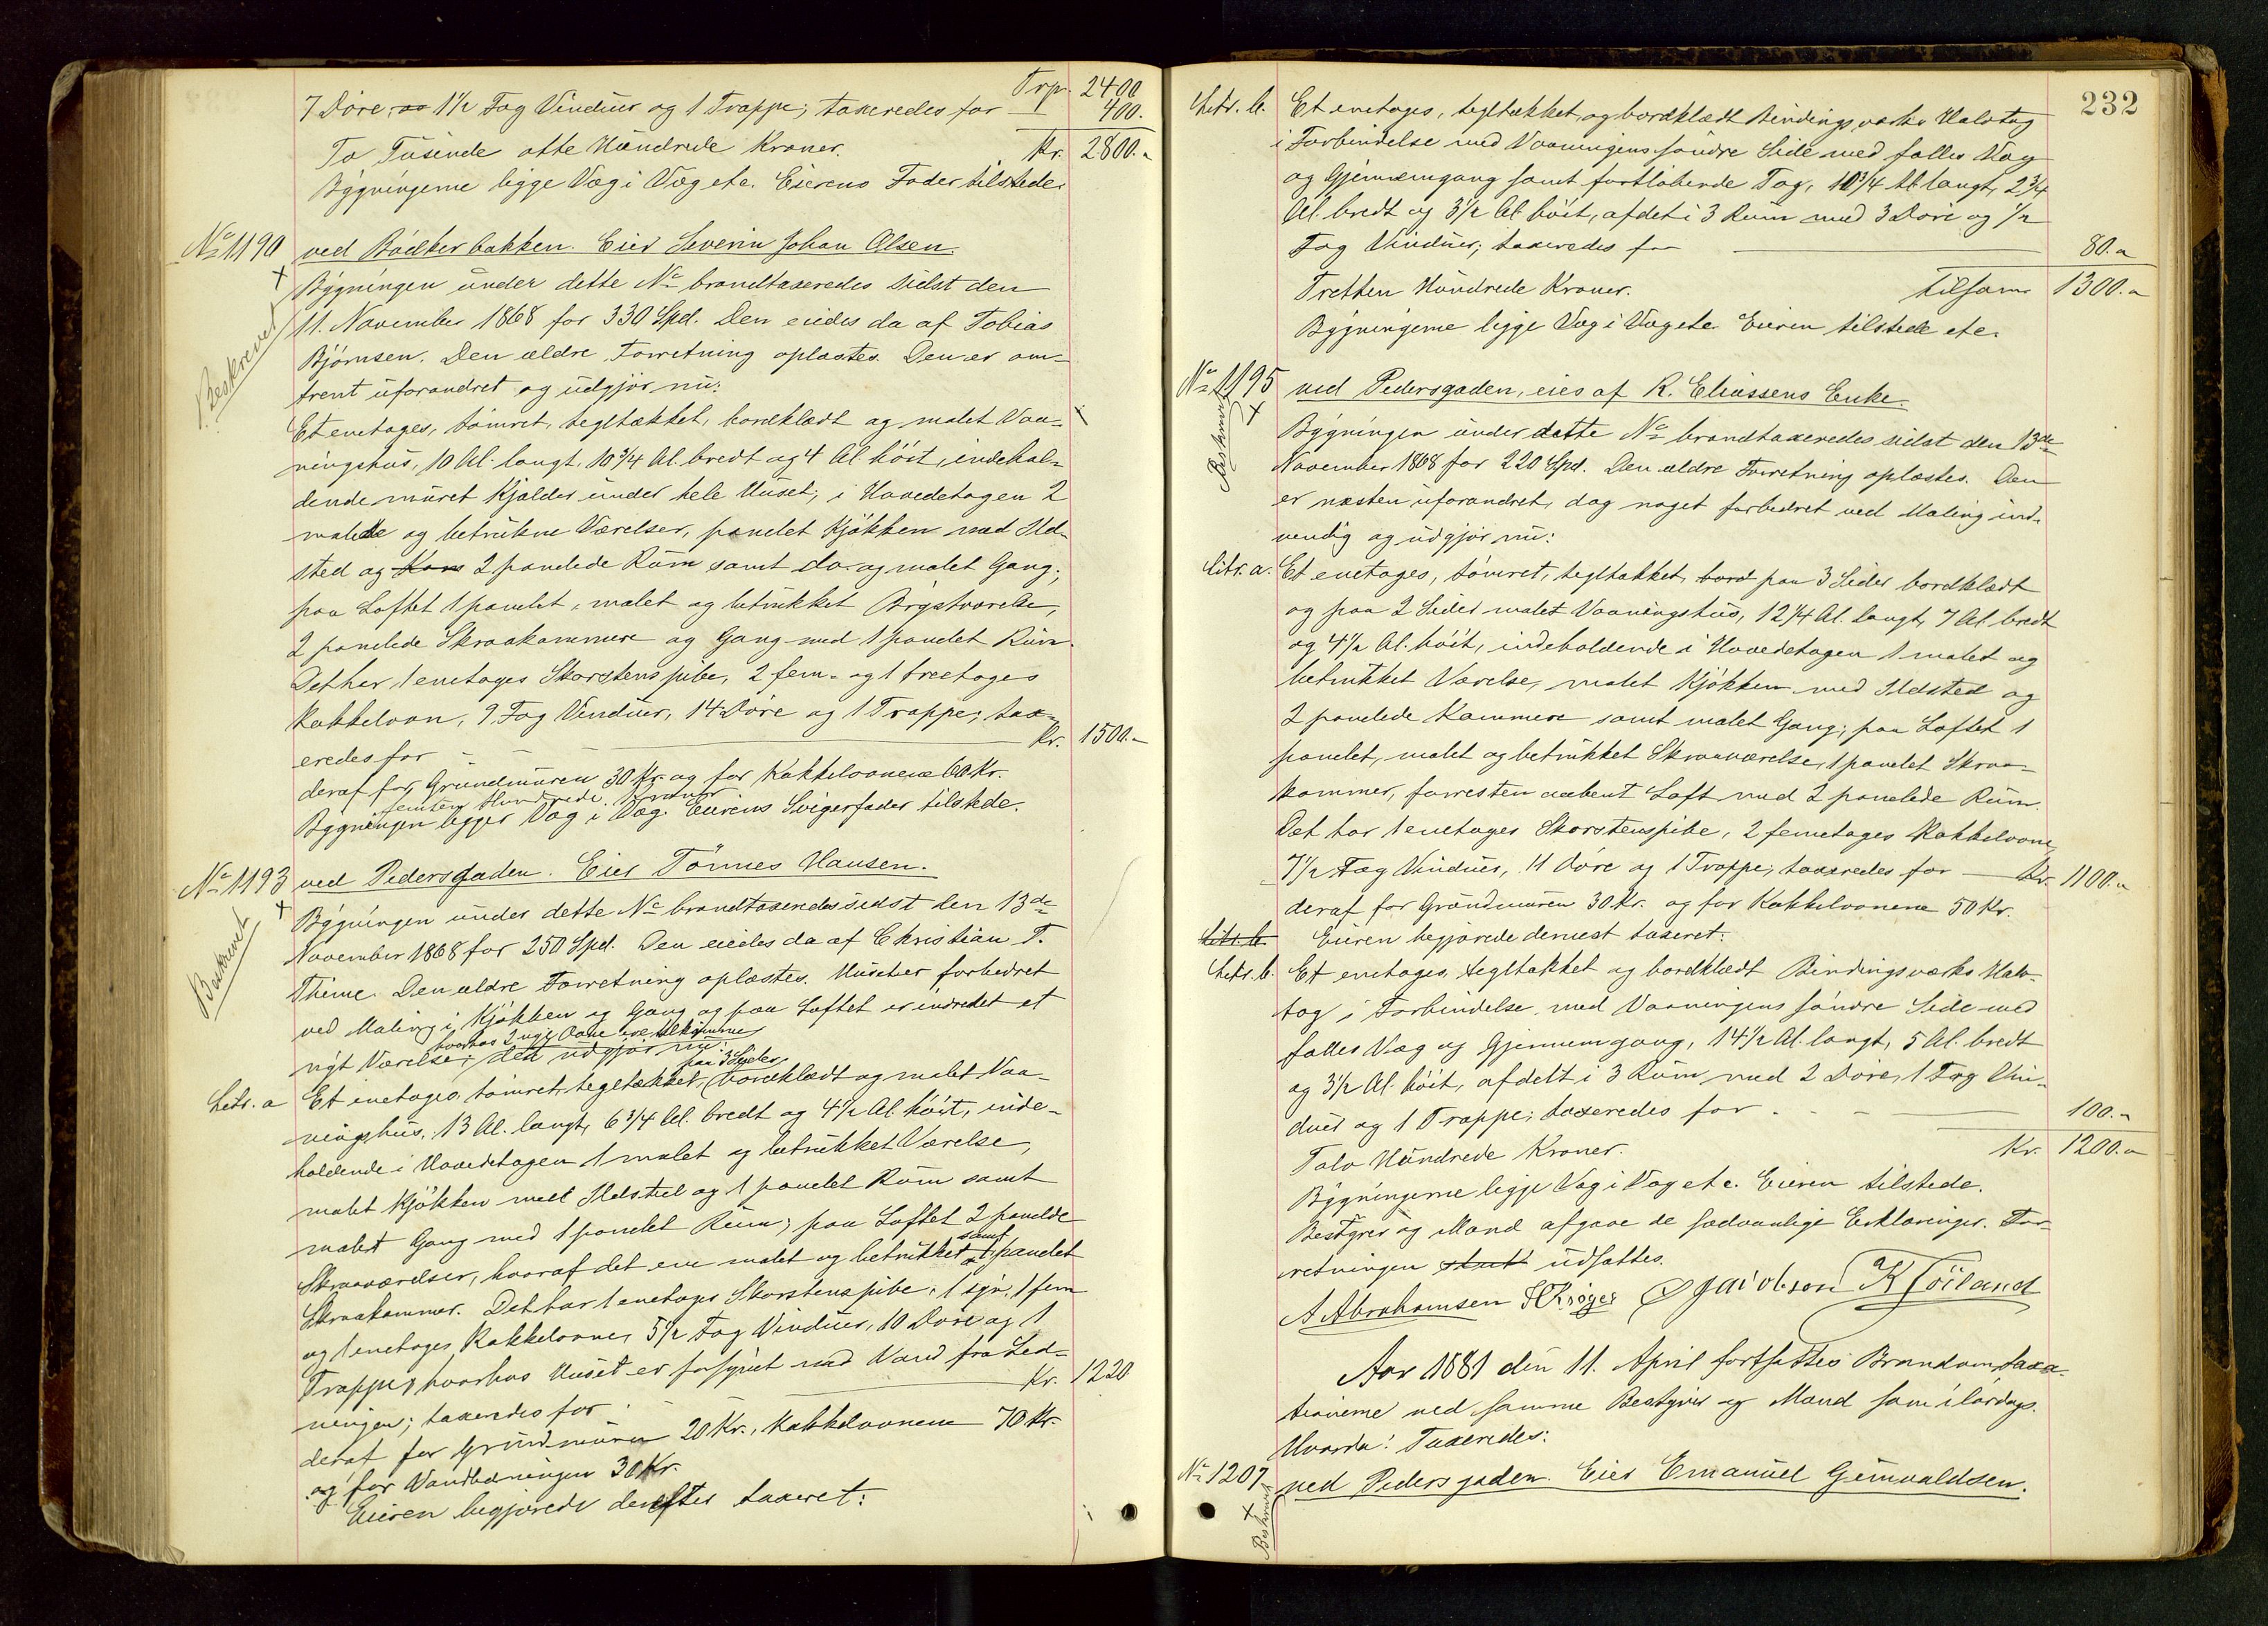 Trp. 2400
7 Döre, 1½ Fag Vinduer og 1 Trappe; taxeredes for — 400.
To Tusinde otte Hundrede Kroner. Kr. 2800.-
Bygningerne ligge Væg i Væg etc. Eierens Fader tilstede.
No 1190 ved Bödkerbakken. Eier Severin Johan Olsen.
Bygningen under dette No brandtaxeredes sidst den
Beskrevet
11. November 1868 for 330 Spd. Den eiedes da af Tobias
Bjørnsen. Den ældre Forretning oplæstes. Den er om-
trent uforandret og udgjør nu:
Et enetages, tömret, tegltækket, bordklædt og malet Vaa-
ningshus, 10 Al. langt, 10¾ Al. bredt og 4 Al. höit, indehol-
dende muret Kjælder under hele Huset; i Hovedetagen 2
malede og betrukne Værelser, panelet Kjökken med Ild-
sted og 2 panelede Rum samt do. og malet Gang;
paa Loftet 1 panelet, malet og betrukket Brystværelse,
2 panelede Skraakammere og Gang med 1 panelet Rum.
Det har 1 enetages Skorstenspibe, 2 fem- og 1 treetages
Kakkelovn, 9 Fag Vinduer, 14 Döre og 1 Trappe; tax-
eredes for — Kr. 1500.-
deraf for Grundmuren 30 Kr. og for Kakkelovnene 60 Kr.
femten Hundrede Kroner
Bygningen ligger Væg i Væg. Eierens Svigerfader tilstede.
No 1193 ved Pedersgaden. Eier Tönnes Hansen.
Bygningen under dette No brandtaxeredes sidst den 13de
Beskrevet
November 1868 for 250 Spd. Den eiedes da af Christian T.
Thime. Den ældre Forretning oplæstes. Huset er forbedret
ved Maling i Kjökken og Gang og paa Loftet er indredet et
nyt Værelse; den udgjør nu:
paa 3 Sider
Litr. a Et enetages, tömret, tegltækket, bordklædt og malet Vaa-
ningshus, 13 Al. langt, 6¾ Al. bredt og 4½ Al. höit, inde-
holdende i Hovedetagen 1 malet og betrukket Værelse,
malet Kjökken med Ildsted og 1 panelet Rum samt
malet Gang med 1 panelet Rum; paa Loftet 2 panelede
samt
Skraaværelser, hvoraf det ene malet og betrukket 1 panelet
Skraakammer. Det har 1 enetages Skorstenspibe, 1 syv, 1 fem
og 1 enetages Kakkelovne, 5½ Fag Vinduer, 10 Döre og 1
Trappe, hvorhos Huset er forsynet med Vand fra Led-
ningen; taxeredes for — Kr. 1220
deraf for Grundmuren 20 Kr., Kakkelovnene 70 Kr.
og for Vandledningen 30 Kr.
Eieren begjærede derefter taxeret:
232
Litr. b. Et enetages, tegltækket, og bordklædt Bindingsværks Halvtag
i Forbindelse med Vaaningens søndre Side med fælles Væg
og Gjennemgang samt fortløbende Tag, 10¾ Al. langt, 2¾
Al. bredt og 3½ Al. höit, afdelt i 3 Rum med 3 Döre og ½
Fag Vinduer; taxeredes for — 80.-
Tretten Hundrede Kroner. tilsam. 1300.-
Bygningerne ligge Væg i Væg etc. Eieren tilstede etc.
No 1195 ved Pedersgaden, eies af R. Eliassens Enke.
Beskrevet
Bygningen under dette No brandtaxeredes sidst den 13de
November 1868 for 220 Spd. Den ældre Forretning oplæstes. Den
er næsten uforandret, dog noget forbedret ved Maling ind-
vendig og udgjør nu:
Litr. a. Et enetages, tömret, tegltækket, bord paa 3 Sider bordklædt
og paa 2 Sider malet Vaaningshus, 12¼ Al. langt, 7 Al. bredt
og 4½ Al. höit, indeholdende i Hovedetagen 1 malet og
betrukket Værelse, malet Kjökken med Ildsted og
2 panelede Kammere samt malet Gang; paa Loftet 1
panelet, malet og betrukket Skraaværelse, 1 panelet Skraa-
kammer, forresten aabent Loft med 2 panelede Rum.
Det har 1 enetages Skorstenspibe, 2 femetages Kakkelovne,
7½ Fag Vinduer, 11 Döre og 1 Trappe; taxeredes for — Kr. 1100.-
deraf for Grundmuren 30 Kr. og for Kakkelovnene 50 Kr.
Litr. b. Eieren begjærede dernest taxeret:
Litr. b. Et enetages, tegltækket og bordklædt Bindingsværks Halv-
tag i Forbindelse med Vaaningens søndre Side med
fælles Væg og Gjennemgang, 14½ Al. langt, 5 Al. bredt
og 3½ Al. höit, afdelt i 3 Rum med 2 Döre, 1 Fag Vin-
duer og 1 Trappe; taxeredes for — 100.-
Tolv Hundrede Kroner. Kr. 1200.-
Bygningerne ligge Væg i Væg etc. Eieren tilstede.
Bestyrer og Mænd afgave de sædvanlige Erklæringer. For-
retningen udsattes.
A Abrahamsen Kröger Jacobsen K Töiland
Aar 1881 den 11. April fortsattes Brandomtaxa-
tionerne ved samme Bestyrer og Mænd som i lördags.
Hvorda: Taxeredes:
No 1207 ved Pedersgaden. Eier Emanuel Gunvaldsen.
Beskrevet